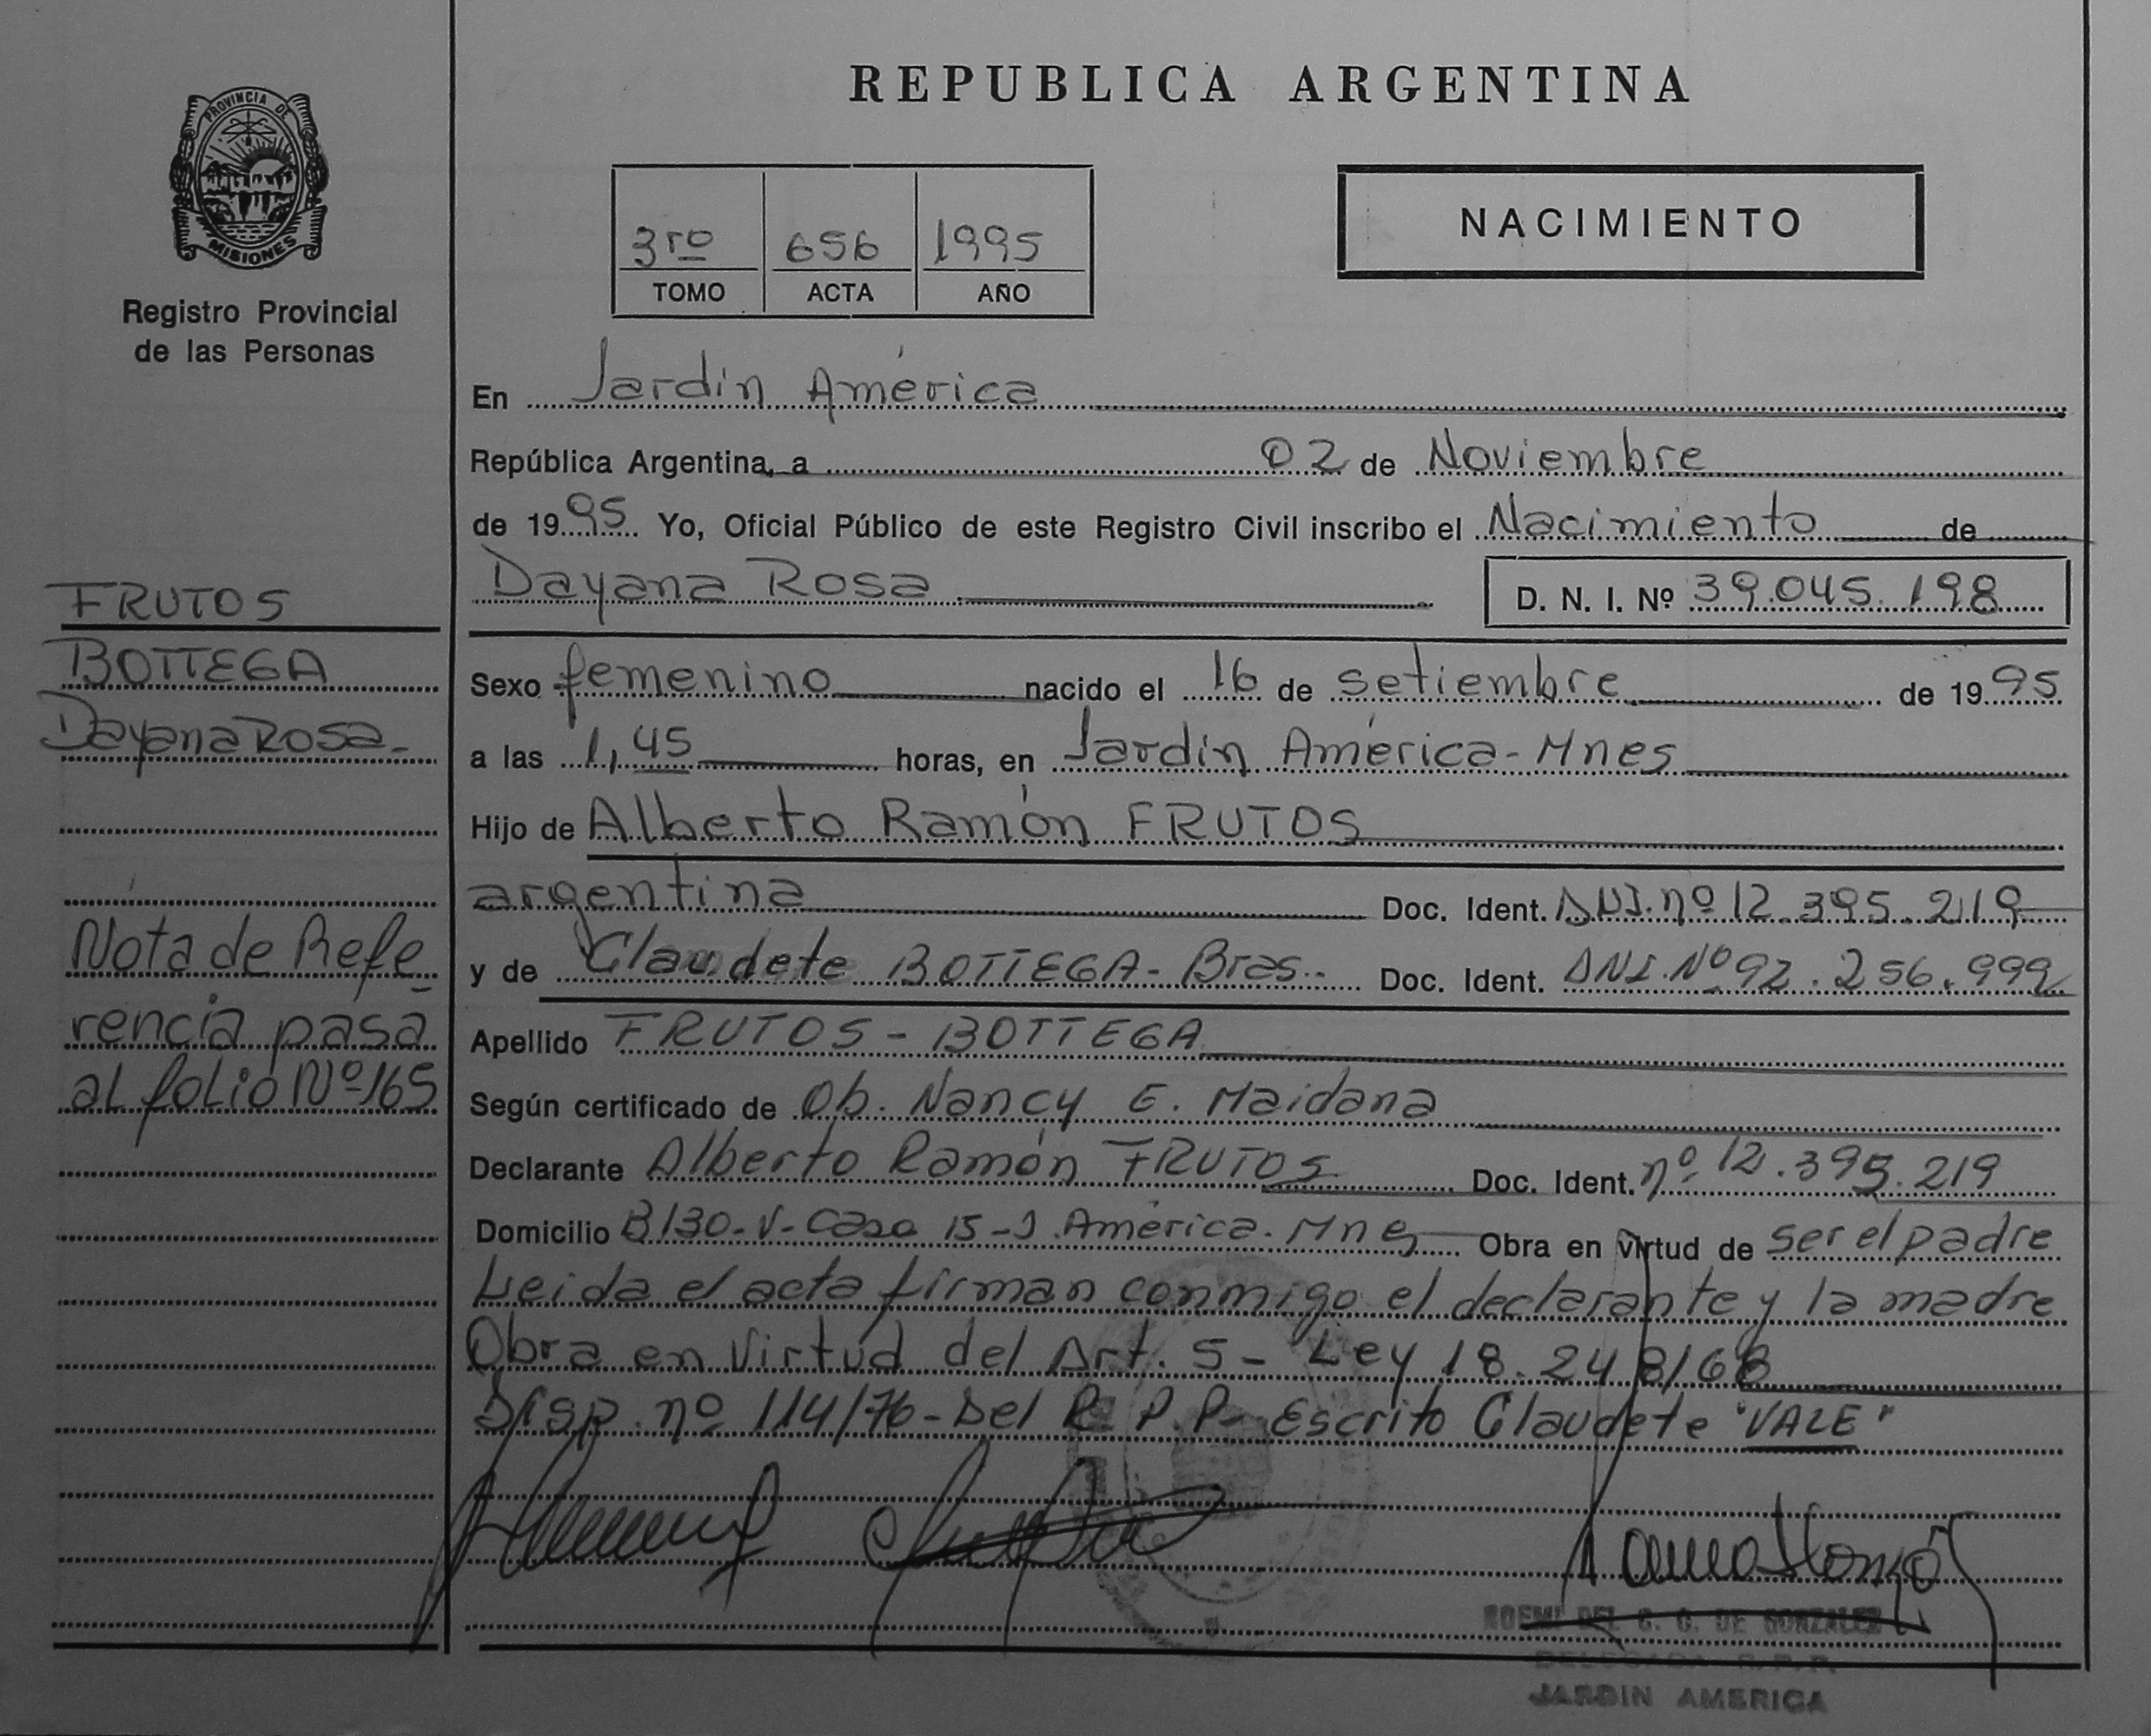 REPUBLICA ARGENTINA
PROVINCIA DE
MISIONES
Registro Provincial
de las Personas
3ro 656 1995
TOMO ACTA AÑO
NACIMIENTO
En Jardín América
República Argentina, a 02 de Noviembre
de 1995 Yo, Oficial Público de este Registro Civil inscribo el Nacimiento de
Dayana Rosa D. N. I. Nº 39.045.198
FRUTOS
BOTTEGA
Dayana Rosa-
Sexo femenino nacido el 16 de setiembre de 1995
a las 1,45 horas, en Jardín América-Mnes
Hijo de Alberto Ramón FRUTOS
argentina Doc. Ident. DNI.nº 12.395.219
y de Claudete BOTTEGA- Bras.- Doc. Ident. DNI.Nº 92.256.999
Apellido FRUTOS - BOTTEGA
Según certificado de Ob. Nancy E. Maidana
Declarante Alberto Ramón FRUTOS Doc. Ident. nº 12.395.219
Domicilio B130-V-Casa 15-J.América. Mnes Obra en virtud de ser el padre
Leida el acta firman conmigo el declarante y la madre
Obra en Virtud del Art. 5- Ley 18.248/68
Disp. nº 114/76-Del R.P.P- Escrito Claudete "VALE"
Nota de Refe-
rencia pasa
al folio Nº165
NOEMI DEL C. G. DE GONZALEZ
DELEGADA R.P.P.
JARDIN AMERICA